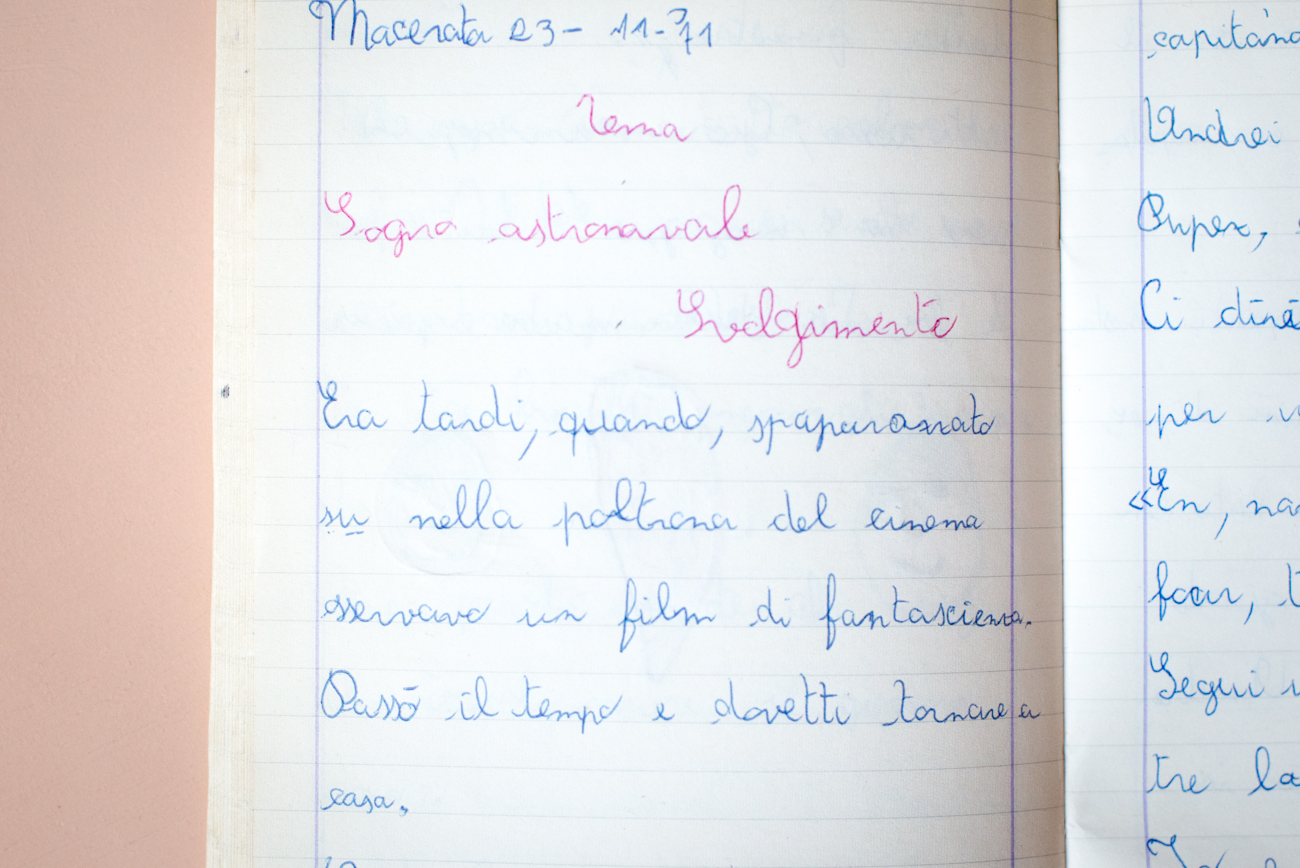 Macerata 23-11-71
Tema
Sogno astronavale
Svolgimento
Era tardi, quando, spaparanzato
su nella poltrona del cinema
osservavo un film di fantascienza.
Passò il tempo e dovetti tornare a
casa.
capitano
Andrei
Ci
per
«En,
four,
Segui
tre